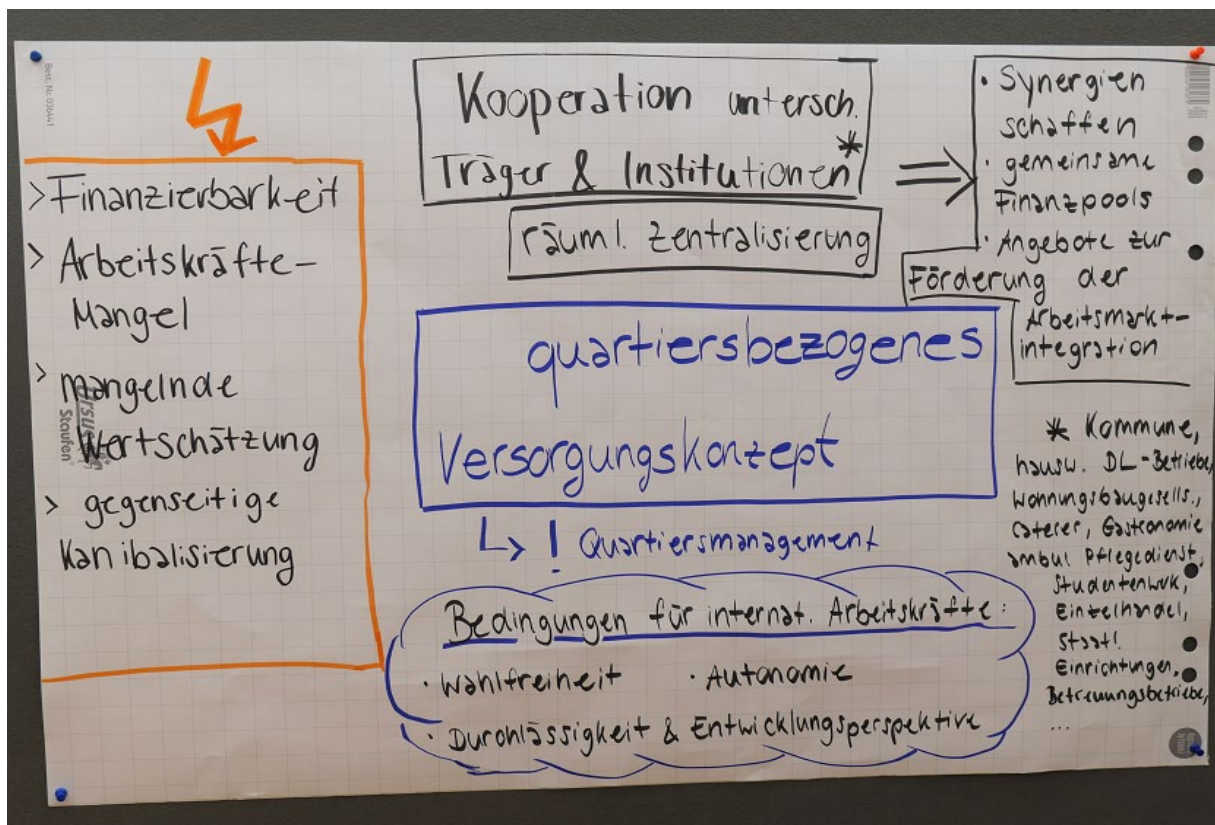 Best. Nr. 036441
>Finanzierbarkeit
> Arbeitskräfte-
Mangel
> mangelnde
Wertschätzung
> gegenseitige
Kanibalisierung
Staufen
Kooperation untersch.
Träger & Institutionen*
räuml. Zentralisierung
· Synergien
schaffen
· gemeinsame
Finanzpools
· Angebote zur
Förderung der
Arbeitsmarkt-
integration
quartiersbezogenes
Versorgungskonzept
! Quartiersmanagement
Bedingungen für internat. Arbeitskräfte:
· Wahlfreiheit · Autonomie
· Durchlässigkeit & Entwicklungsperspektive
* Kommune,
hausw. DL-Betriebe,
Wohnungsbaugesells.,
Caterer, Gastronomie
ambul. Pflegedienst,
Studentenwk,
Einzelhandel,
Staatl.
Einrichtungen,
Betreuungsbetriebe,
...